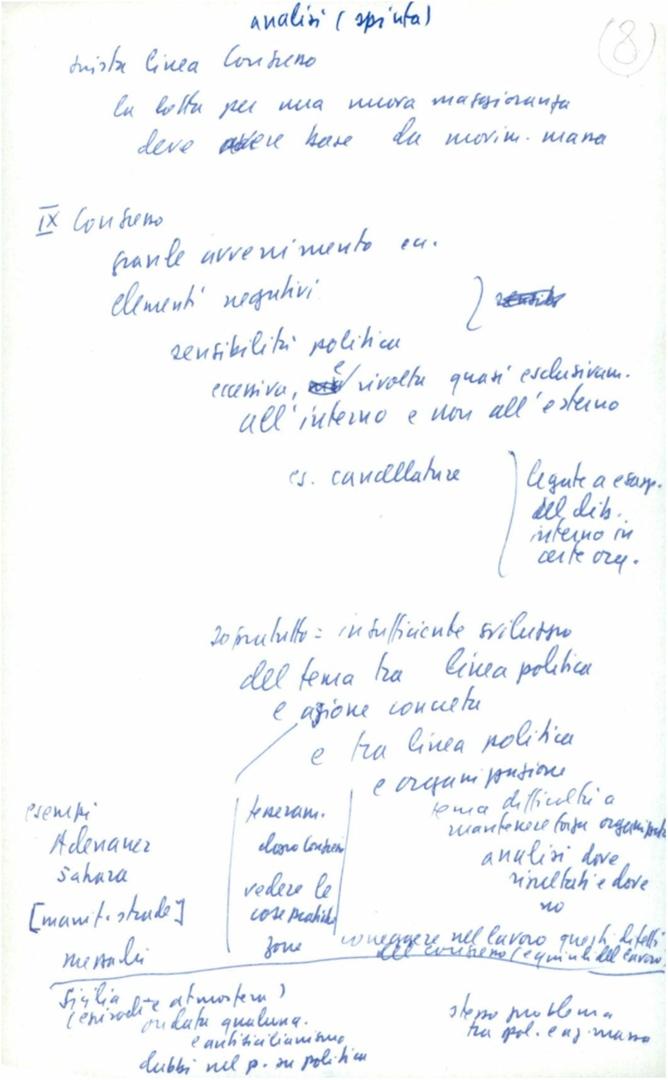 analisi (spinta)
(8)
linea Congresso
la lotta per una nuova maggioranza
deve avere base da movim. massa
IX Congresso
grande avvenimento ecc.
elementi negativi
sensibilità politica
eccessiva, è rivolta quasi esclusivam.
all'interno e non all'esterno
es. cancellature
legate a esasp.
del dib.
interno in
certe org.
sopratutto = insufficiente sviluppo
del tema tra linea politica
e azione concreta
e tra linea politica
e organizzazione
tema difficoltà a
mantenere forza organizzata
analisi dove
risultati e dove
no
esempi
Adenauer
Sahara
[manif. strade]
tesseram.
dopo Congressi
vedere le
cose pratiche
zone
correggere nel lavoro questi difetti
del congresso (e quindi del lavoro)
Sicilia
(episodi e atmosfera)
ondata qualunq.
e antisicilianismo
dubbi nel p. su politica
stesso problema
tra pol. e az. massa